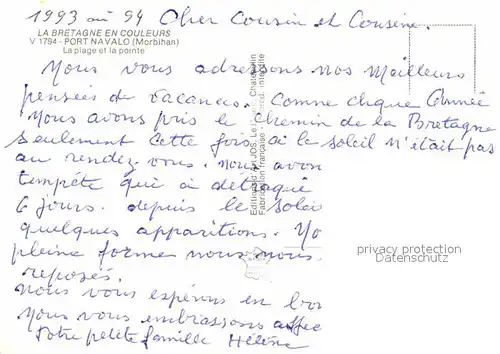 1993 ou 94 Cher Cousin et Cousine.
LA BRETAGNE EN COULEURS
V 1794 - PORT NAVALO (Morbihan)
La plage et la pointe
Nous vous adressons nos Meilleurs
pensées de vacances. Comme chque Année
Nous avons pris le chemin de la Bretagne
seulement cette fois ci le soleil N'était pas
au rendez-vous. nous avon
tempête qui a détraqué
6 jours. depuis le solei
quelques apparitions. No
pleine forme nous nous
reposés.
nous vous espérons en bon
Nous vous embrassons affec
Votre petite famille Hélène
Editions d'Art JOS, Le Châteaulin
Fabrication française - interdite
privacy protection
Datenschutz